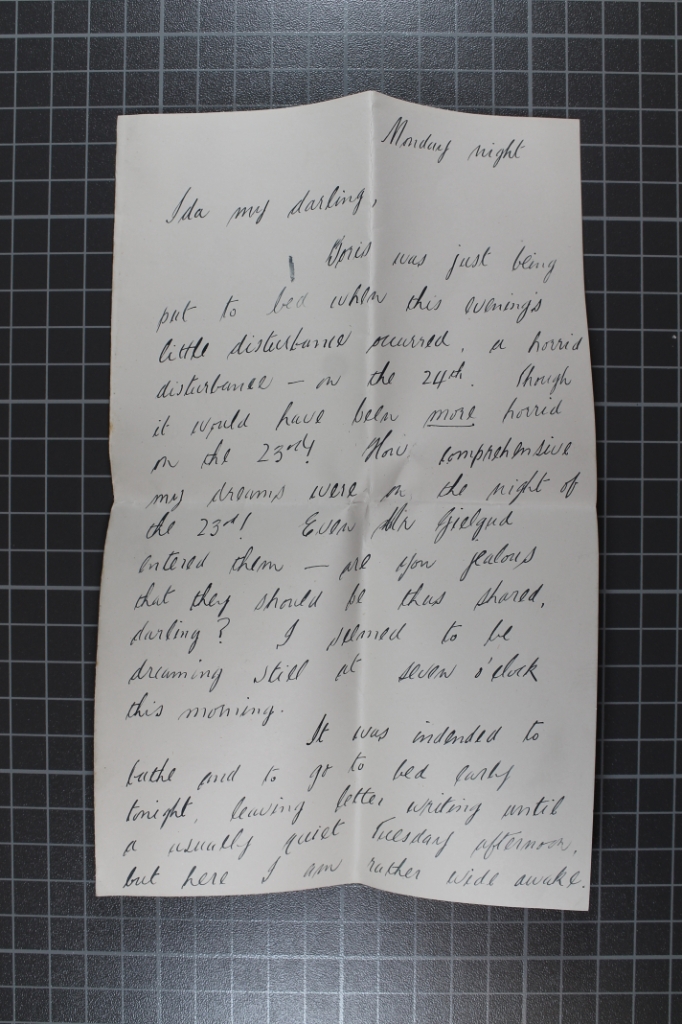 Monday night
Ida my darling,
Doris was just being
put to bed when this evening's
little disturbance ocurred, a horrid
disturbance — on the 24th. Though
it would have been more horrid
on the 23rd! How comprehensive
my dreams were on the night of
the 23rd! Even Mr Gielgud
entered them — are you jealous
that they should be thus shared,
darling? I seemed to be
dreaming still at seven o'clock
this morning.
It was indended to
bathe and to go to bed early
tonight, leaving letter writing until
a usually quiet Tuesday afternoon,
but here I am rather wide awake.